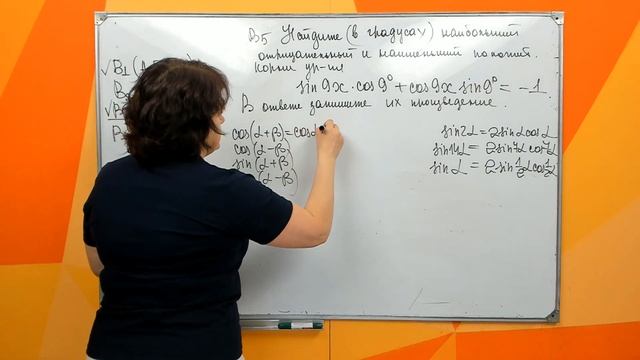 B5 Найдите (в градусах) наибольший
отрицательный и наименьший полож.
корни ур-ия
sin9x·cos9°+cos9x sin9°=-1.
В ответе запишите их произведение.
√B1
cos(α+β)=cosα
cos(α-β)
sin(α+β)
(α-β)
sin2α=2sinαcosα
sinα=2sin½αcos½α